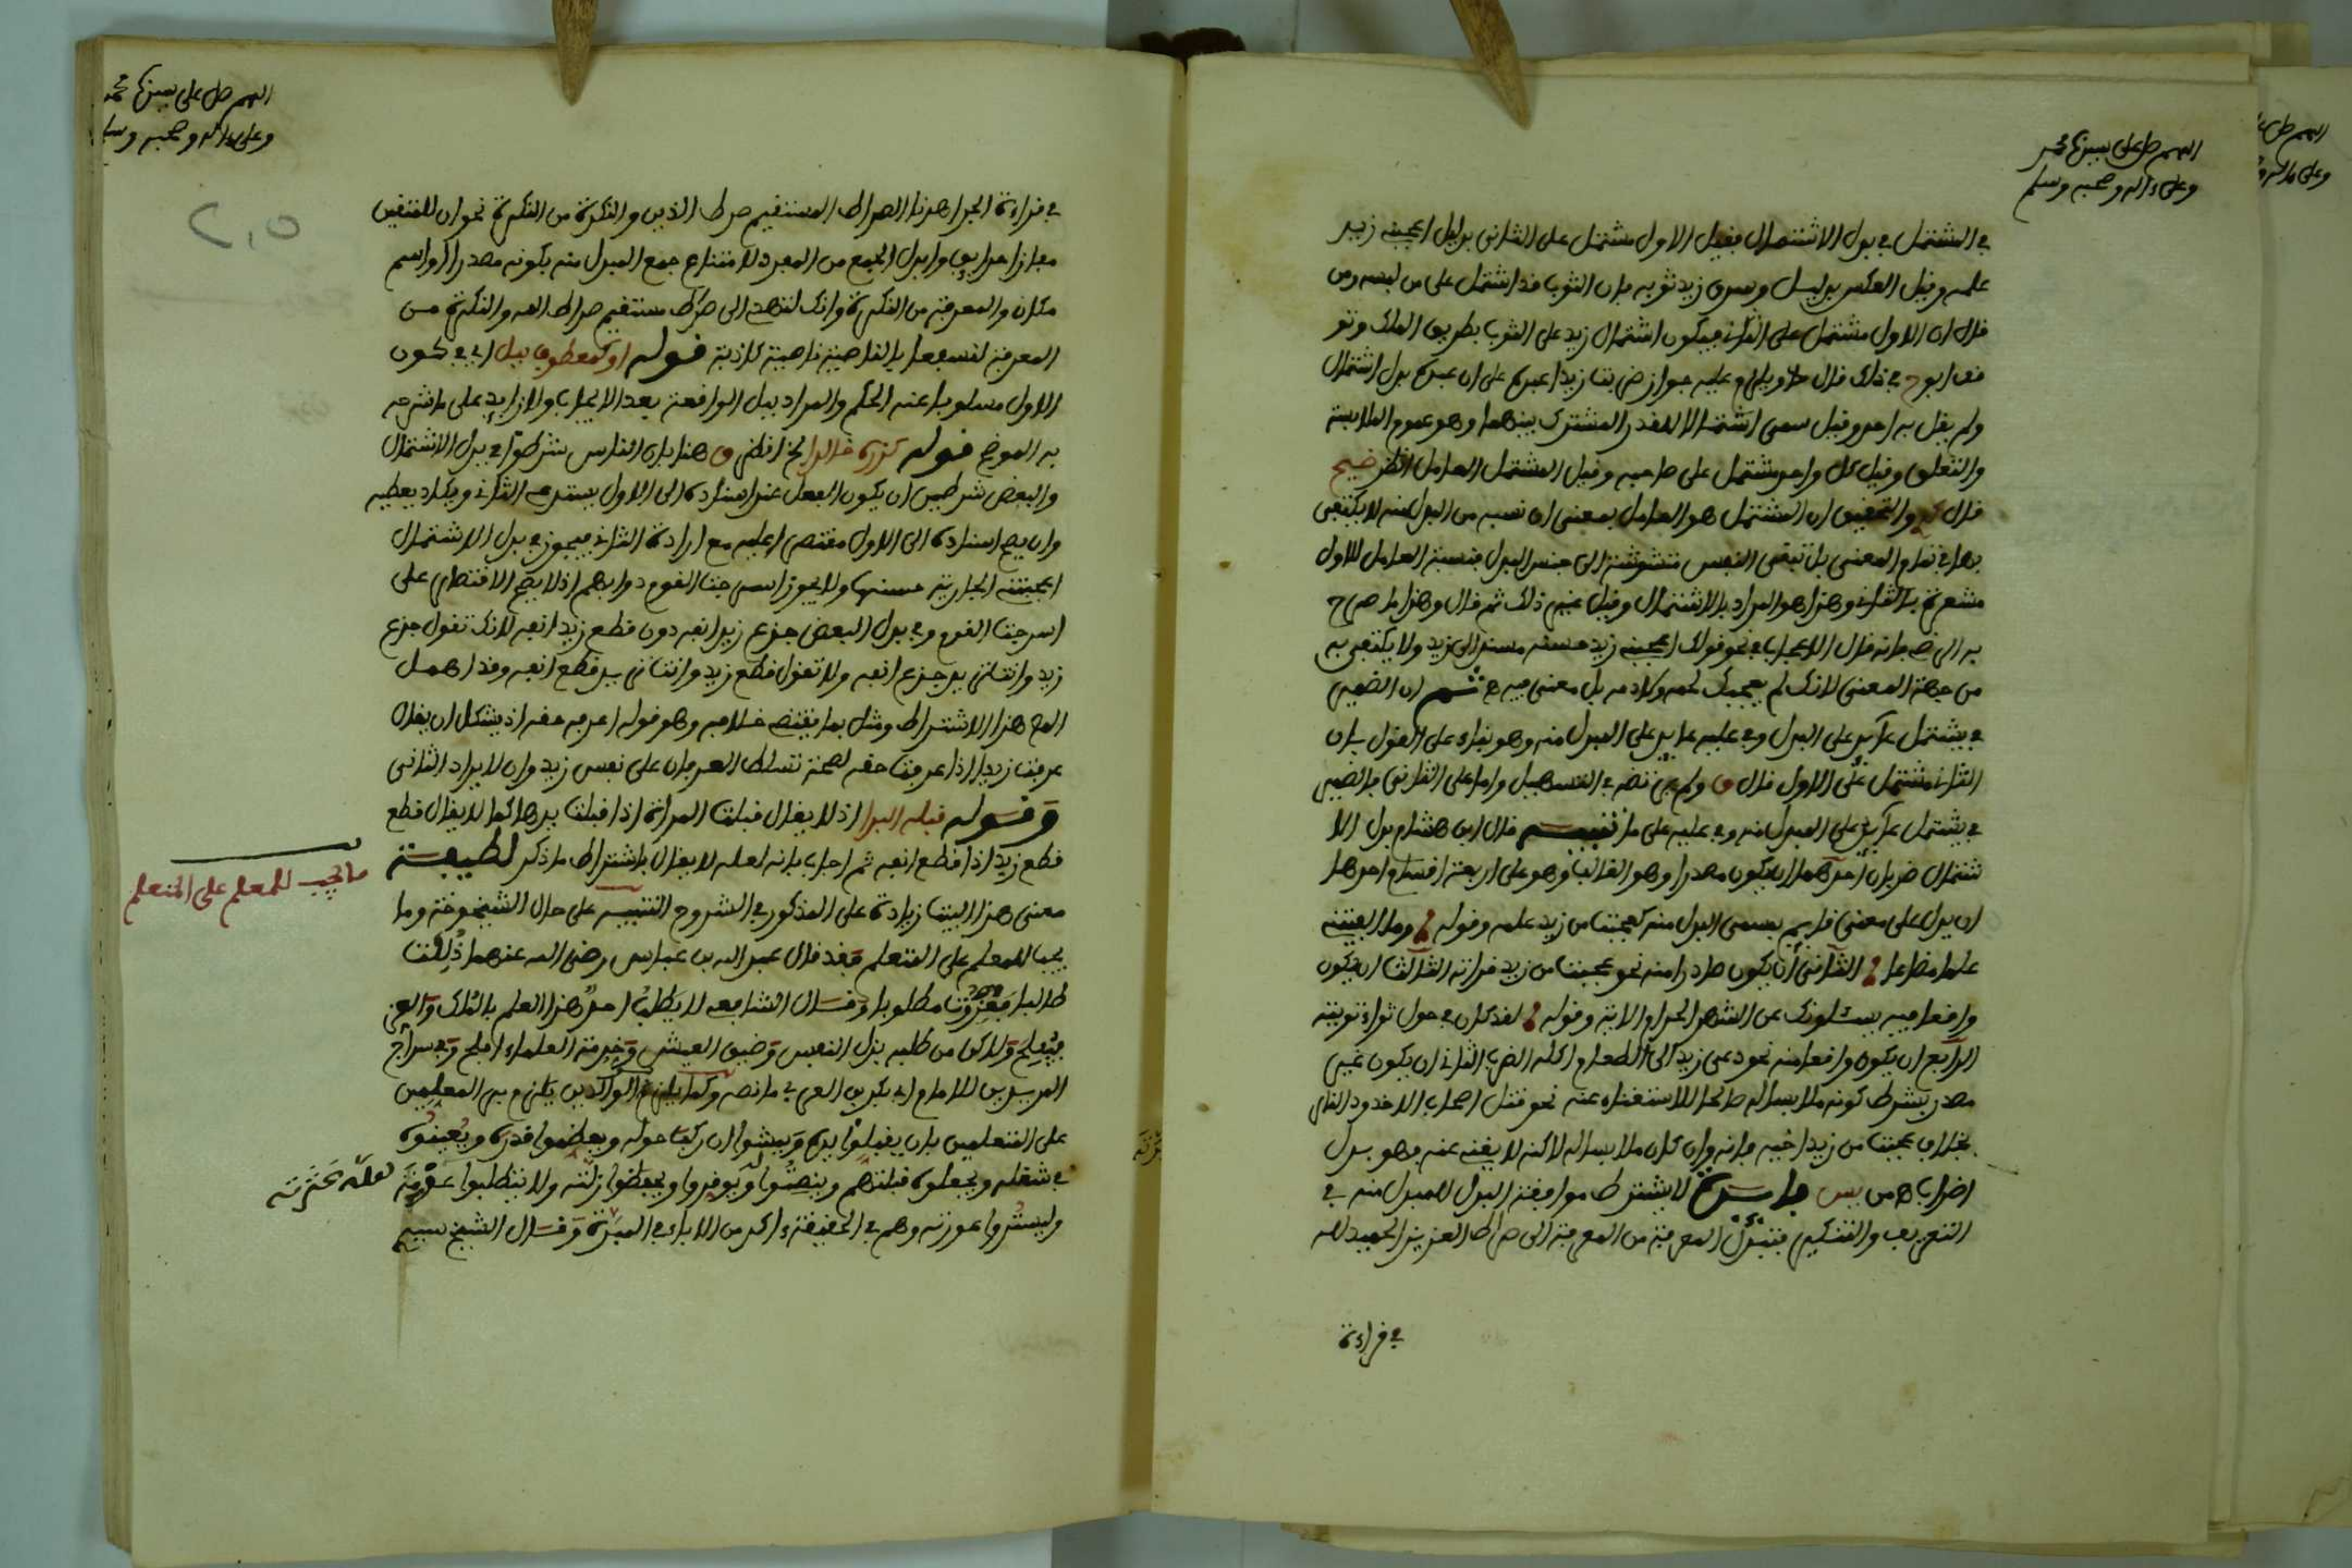 اللهم صل على سيدنا محمد
وعلى ءاله وصحبه وسلم
في المشتمل في بدل الاشتمال فقيل الاول مشتمل على الثاني بدليل اعجبني زيد
علمه وقيل العكس بدليل وسرق زيد ثوبه فان الثوب قد اشتمل على من لبسه ومن
قال ان الاول مشتمل على الثاني فيكون اشتمال زيد على الثوب بطريق الملك وتو
في ذلك قال ويلزم عليه جواز ضربت زيدا عبده على ان عبده بدل اشتمال
ولم يقل به احد وقيل سمي اشتمالا للقدر المشترك بينهما وهو عموم الملابسة
والتعلق وقيل كل واحد مشتمل على صاحبه وقيل المشتمل العامل انظر ضيح
قال والتحقيق ان المشتمل هو العامل بمعنى ان نصيبه من المبدل منه لا يكتفى
بها في تمام المعنى بل تبقى النفس متشوفة الى جنس البدل فنسبة العامل للاول
مشعرة بالثاني وهذا هو المراد بالاشتمال وقيل غير ذلك ثم قال وهذا ما صرح
به الرضي فانه قال الاعجاب في نحو قولك اعجبني زيد حسنه مسند الى زيد ولا يكتفى به
من جهة المعنى لانك لم يعجبك لحمه وكلامه بل معنى فيه ثم ان الضمير
في يشتمل عائد على البدل وفي عليه عائد على المبدل منه وهو بناء على القول بان
الثاني مشتمل على الاول قال ق ولم نص في التسهيل واما على الثاني فالضمير
في يشتمل عائد على المبدل منه وفي عليه على ما تنبيه قال ابن هشام بدل الا
شتمال ضربان احدهما ان يكون مصدرا وهو الغالب وهو على اربعة اقسام احدها
ان يدل على معنى قايم بمسمى المبدل منه كعجبت من زيد علمه وقوله وما الفيتني
حلمي مضاعا الثاني ان يكون صادرا منه نحو عجبت من زيد قراءته الثالث ان يكون
واقعا فيه يسئلونك عن الشهر الحرام الاية وقوله لقد كان في حول ثواء ثويته
الرابع ان يكون واقعا منه نحو دعي زيد الى الطعام اكله الضرب الثاني ان يكون غير
مصدر بشرط كونه ملابسا له صالحا للاستغناء عنه نحو قتل اصحاب الاخدود النار
بخلاف عجبت من زيد اخيه فانه وان كان ملابسا له لاكنه لا يغني عنه فهو بدل
اضراب من يس فايدة لا يشترط موافقة البدل للمبدل منه في
التعريف والتنكير فتبدل المعرفة من المعرفة الى صراط العزيز الحميد الله
في قراءة
اللهم صل على سيدنا محمد
وعلى ءاله وصحبه وسلم
205
في قراءة الجر اهدنا الصراط المستقيم صراط الذين والنكرة من النكرة نحو ان للمتقين
مفازا حدايق وابدل الجمع من المفرد لامتناع جمع المبدل منه بكونه مصدرا او اسم
مكان والمعرفة من النكرة وانك لتهدي الى صراط مستقيم صراط الله والنكرة من
المعرفة لنسفعا بالناصية ناصية كاذبة قوله او كمعطوف ببل اي في كون
الاول مسلوبا عنه الحكم والمراد ببل الواقعة بعد الايجاب والا زايد على ما شرحه
به الموضح قوله كزره خالدا الخ انظر ق هنا فان الناس شرطوا في بدل الاشتمال
والبعض شرطين ان يكون الفعل عند اسناده الى الاول يستدعي الثاني ويكاد يعطيه
وان يصح اسناده الى الاول مقتصرا عليه مع ارادة الثاني فيجوز في بدل الاشتمال
اعجبتني الجارية حسنها ولا يجوز اسرجت القوم دوابهم اذ لا يصح الاقتصار على
اسرجت القوم وفي بدل البعض جدع زيد انفه دون قطع زيد انفه لانك تقول جدع
زيد وانت تريد جدع انفه ولا تقول قطع زيد وانت تريد قطع انفه وقد اهمل
المص هذا الاشتراط ومثل بما يقتضي خلافه وهو قوله اعرفه حقه اذ يشكل ان يقال
عرفت زيدا اذا عرفت حقه لصحة تسلط العرفان على نفس زيد وان لا يراد الثاني
وقوله قبله اليدا اذ لا يقال قبلت المراة اذا قبلت يدها كما لا يقال قطع
قطع زيد اذا قطع انفه ثم اجاب بانه لعله لا يقال باشتراط ما ذكر لطيفة
معنى هذا البيت زيادة على المذكور في الشروح التنبيه على حال الشيخوخة وما
يجب للمعلم على المتعلم فقد قال عبد الله بن عباس رضي الله عنهما ذللت
طالبا فعززت مطلوبا وقال الشافعي لا يطلب احد هذا العلم بالملك والعز
فيفلح ولاكن من طلبه بذل النفس وضيق العيش وخدمة العلماء افلح وفي سراج
المريدين للامام ابي بكر بن العربي ما نصه وكما يلزم الوالدين يلزم بر المعلمين
على المتعلمين بان يقبلوا يده ويمشوا ان ركب حوله ويعظموا قدره ويعينوه
في شغله ويجعلوه قبلتهم وينصتوا له ويوقروا ويحفظوا زلته ولا يتطلبوا عورته
وليستروا عورته وهم في الحقيقة ءاكد من الاباء في المبرة وقال الشيخ سيدي
ما يجب للمعلم على المتعلم
لعله عثرته